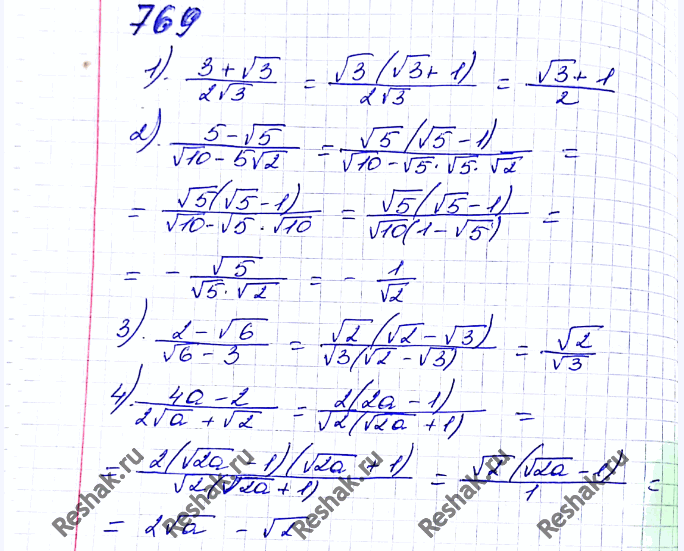 769
1). (3 + √3)/(2√3) = (√3(√3 + 1))/(2√3) = (√3 + 1)/2
2). (5 - √5)/(√10 - 5√2) = (√5(√5 - 1))/(√10 - √5 · √5 · √2) =
= (√5(√5 - 1))/(√10 - √5 · √10) = (√5(√5 - 1))/(√10(1 - √5)) =
= - √5/(√5 · √2) = - 1/√2
3). (2 - √6)/(√6 - 3) = (√2(√2 - √3))/(√3(√2 - √3)) = √2/√3
4). (4a - 2)/(2√a + √2) = (2(2a - 1))/(√2(√2a + 1)) =
= (2(√2a - 1)(√2a + 1))/(√2(√2a + 1)) = (√2(√2a - 1))/1 =
= 2√a - √2
Reshak.ru Reshak.ru Reshak.ru Reshak.ru Reshak.ru